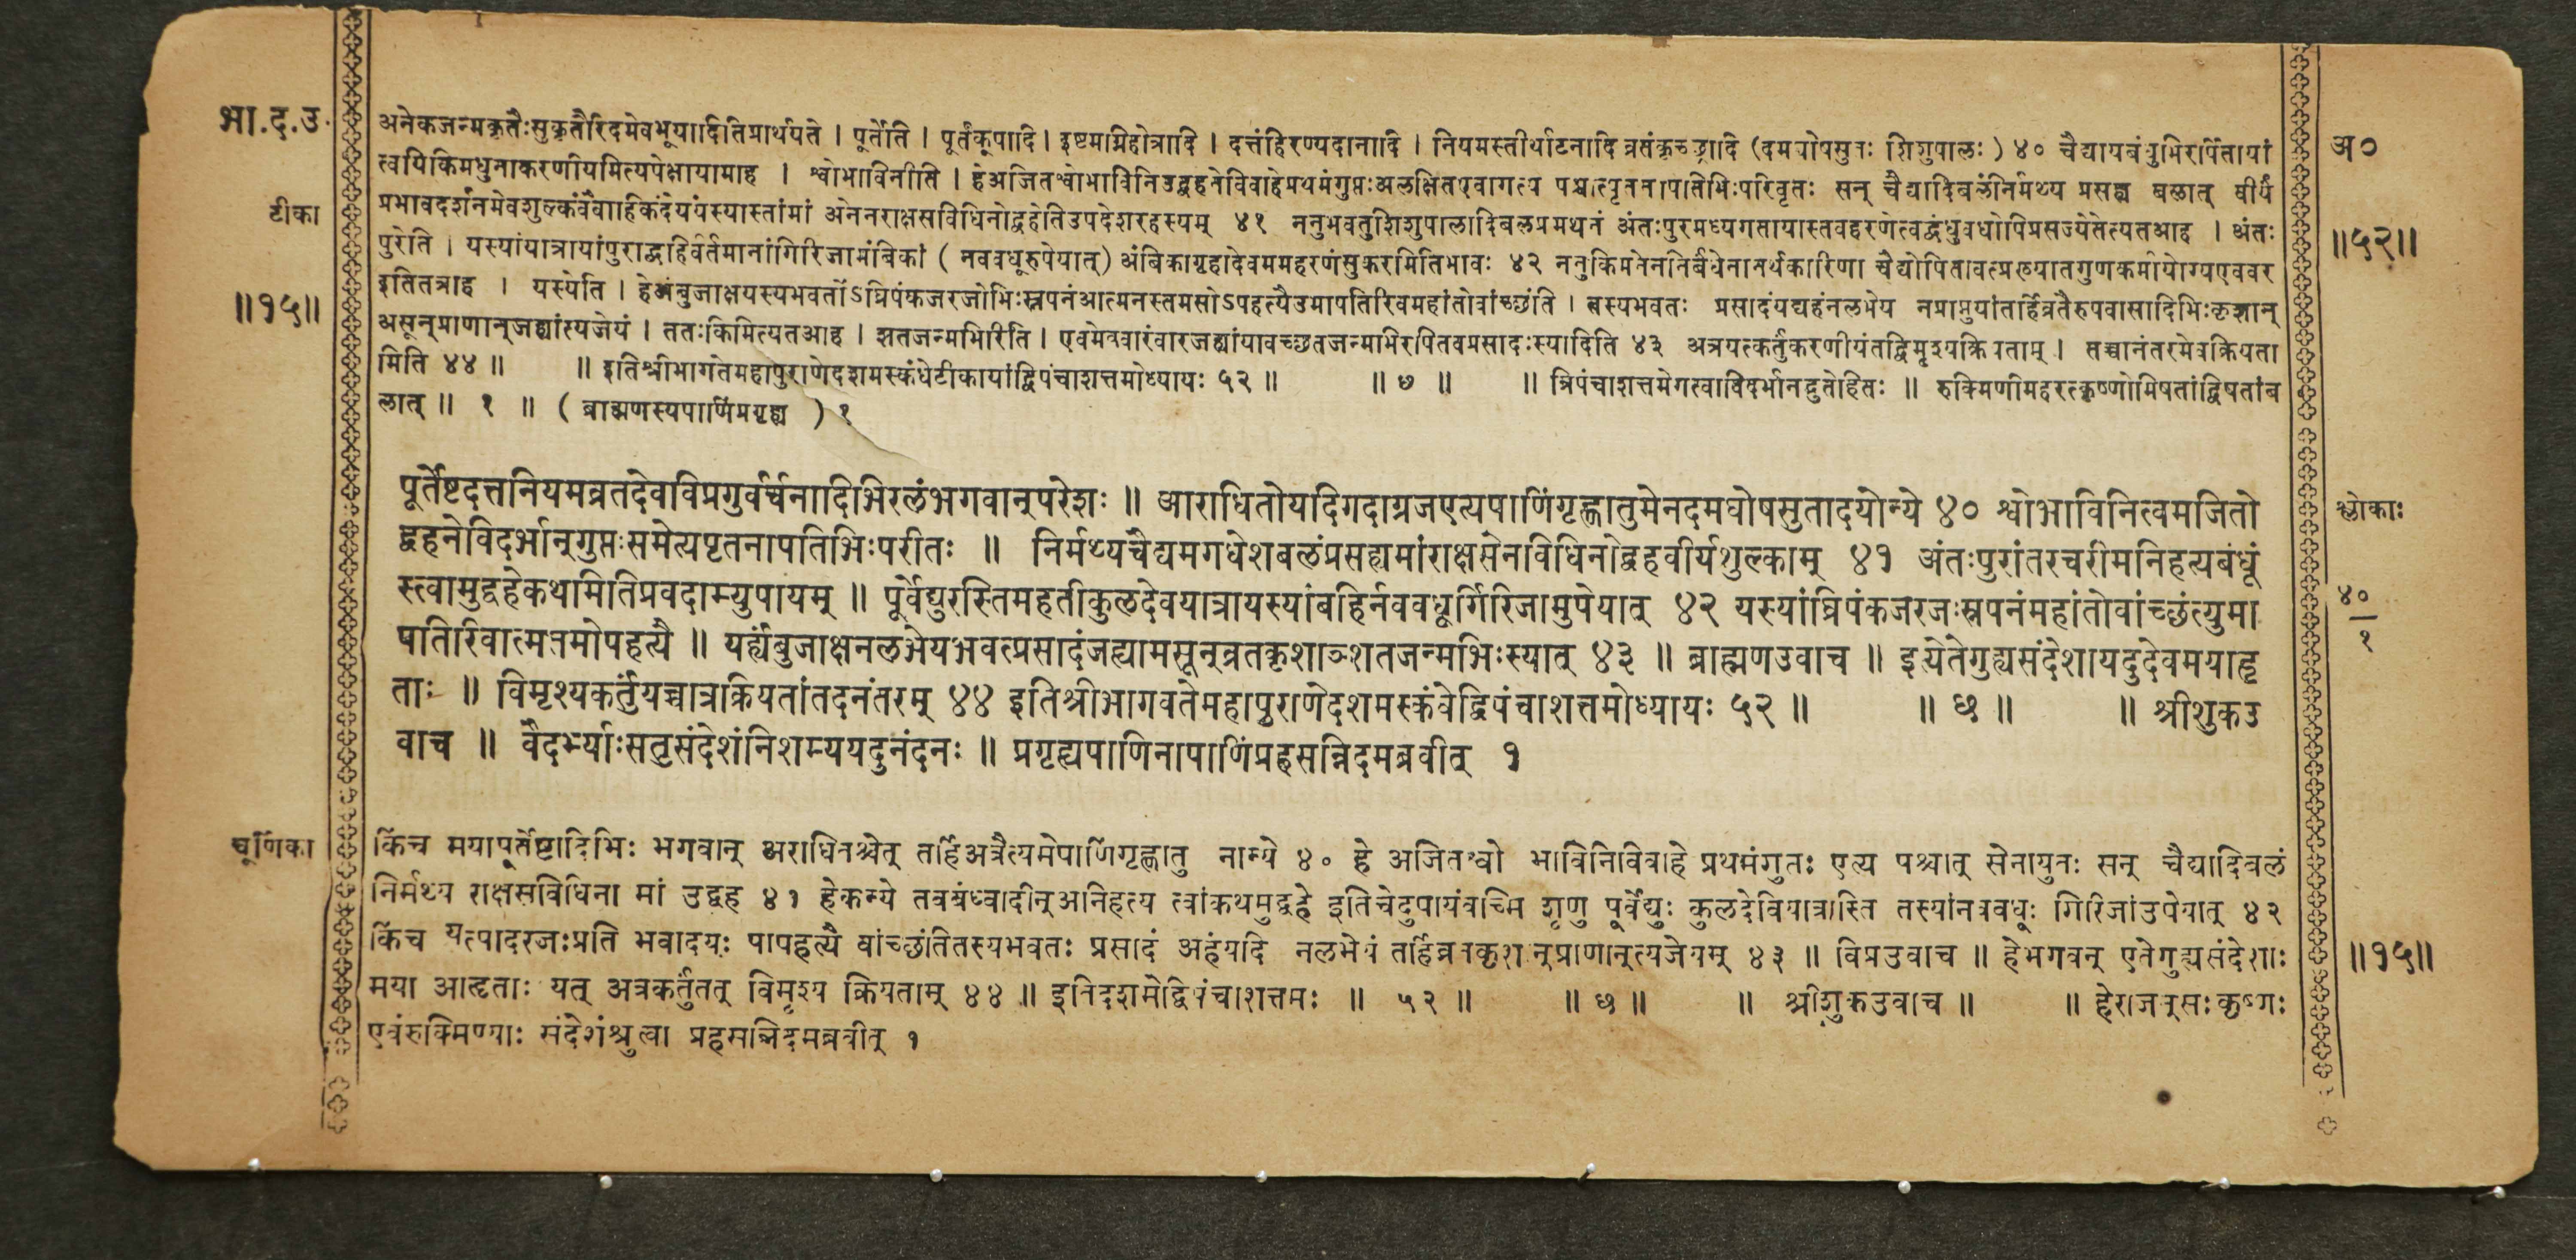 भा.द.उ.
टीका
॥१५॥
अनेकजन्मकृतैःसुकृतैरिदमेवभूयादितिप्रार्थयते । पूर्तेति । पूर्तंकूपादि । इष्टमग्निहोत्रादि । दत्तंहिरण्यदानादि । नियमस्तीर्थाटनादि व्रतंकृच्छ्रादि (दमघोषसुतः शिशुपालः) ४० चैद्यायबंधुभिरर्पितायां
त्वयिकिमधुनाकरणीयमित्यपेक्षायामाह । श्वोभाविनीति । हेअजितश्वोभाविनिउद्वहनेविवाहेप्रथमंगुप्तःअलक्षितएवागत्य पश्चात्पृतनापतिभिःपरिवृतः सन् चैद्यादिबलंनिर्मथ्य प्रसह्य बलात् वीर्यं
प्रभावदर्शनमेवशुल्कंवैवाहिकंदेयंयस्यास्तांमां अनेनराक्षसविधिनोद्वहेतिउपदेशरहस्यम् ४१ ननुभवतुशिशुपालादिबलप्रमथनं अंतःपुरमध्यगतायास्तवहरणेत्वद्बंधुवधोपिप्रसज्येतेत्यतआह । अंतः
पुरेति । यस्यांयात्रायांपुराद्बहिर्वर्तमानांगिरिजामंबिकां ( नववधूरुपेयात्) अंबिकागृहादेवममहरणंसुकरमितिभावः ४२ ननुकिमनेननिर्बंधेनानर्थकारिणा चैद्योपितावत्प्रख्यातगुणकर्मायोग्यएववर
इतितत्राह । यस्येति । हेअंबुजाक्षयस्यभवतोंऽघ्रिपंकजरजोभिःस्नपनंआत्मनस्तमसोऽपहत्यैउमापतिरिवमहांतोवांच्छंति । तस्यभवतः प्रसादंयद्यहंनलभेय नप्राप्नुयांतर्हिव्रतैरुपवासादिभिःकृशान्
असून्प्राणान्जह्यांत्यजेयं । ततःकिमित्यतआह । शतजन्मभिरिति । एवमेववारंवारजह्यांयावच्छतजन्मभिरपितवप्रसादःस्यादिति ४३ अत्रयत्कर्तुंकरणीयंतद्विमृश्यक्रियताम् । तच्चानंतरमेवक्रियता
मिति ४४ ॥ ॥ इतिश्रीभागतेमहापुराणेदशमस्कंधेटीकायांद्विपंचाशत्तमोध्यायः ५२ ॥ ॥ ७ ॥ ॥ त्रिपंचाशत्तमेगत्वाविदर्भानद्भुतोहितः ॥ रुक्मिणीमहरत्कृष्णोमिषतांद्विषतांब
लात् ॥ १ ॥ ( ब्राह्मणस्यपाणिंप्रगृह्य ) १
अ०
॥५२॥
पूर्तेष्टदत्तनियमव्रतदेवविप्रगुर्वर्चनादिभिरलंभगवान्परेशः ॥ आराधितोयदिगदाग्रजएत्यपाणिंगृह्णातुमेनदमघोषसुतादयोन्ये ४० श्वोभाविनित्वमजितो
द्वहनेविदर्भान्गुप्तःसमेत्यपृतनापतिभिःपरीतः ॥ निर्मथ्यचैद्यमगधेशबलंप्रसह्यमांराक्षसेनविधिनोद्वहवीर्यशुल्काम् ४१ अंतःपुरांतरचरीमनिहत्यबंधूं
स्त्वामुद्वहेकथमितिप्रवदाम्युपायम् ॥ पूर्वेद्युरस्तिमहतीकुलदेवयात्रायस्यांबहिर्नववधूर्गिरिजामुपेयात् ४२ यस्यांघ्रिपंकजरजःस्नपनंमहांतोवांच्छंत्युमा
पतिरिवात्मतमोपहत्यै ॥ यर्ह्यंबुजाक्षनलभेयभवत्प्रसादंजह्यामसून्व्रतकृशाञ्शतजन्मभिःस्यात् ४३ ॥ ब्राह्मणउवाच ॥ इत्येतेगुह्यसंदेशायदुदेवमयाहृ
ताः ॥ विमृश्यकर्तुंयच्चात्रक्रियतांतदनंतरम् ४४ इतिश्रीभागवतेमहापुराणेदशमस्कंधेद्विपंचाशत्तमोध्यायः ५२ ॥ ॥ ७ ॥ ॥ श्रीशुकउ
वाच ॥ वैदर्भ्याःसतुसंदेशंनिशम्ययदुनंदनः ॥ प्रगृह्यपाणिनापाणिंप्रहसन्निदमब्रवीत् १
श्लोकाः
४०
१
चूर्णिका
किंच मयापूर्तेष्टादिभिः भगवान् अराधितश्चेत् तर्हिअत्रैत्यमेपाणिंगृह्णातु नान्ये ४० हे अजितश्वो भाविनिविवाहे प्रथमंगुतः एत्य पश्चात् सेनायुतः सन् चैद्यादिबलं
निर्मथ्य राक्षसविधिना मां उद्वह ४१ हेकन्ये तवबंध्वादीन्अनिहत्य त्वांकथमुद्वहे इतिचेदुपायंवच्मि शृणु पूर्वेद्युः कुलदेवियात्रास्ति तस्यांनववधूः गिरिजांउपेयात् ४२
किंच यत्पादरजःप्रति भवादयः पापहत्यै वांच्छंतितस्यभवतः प्रसादं अहंयदि नलभेयं तर्हिव्रतकृशान्प्राणान्त्यजेयम् ४३ ॥ विप्रउवाच ॥ हेभगवन् एतेगुह्यसंदेशाः
मया आहृताः यत् अत्रकर्तुंतत् विमृश्य क्रियताम् ४४ ॥ इतिदशमेद्विपंचाशत्तमः ॥ ५२ ॥ ॥ ७ ॥ ॥ श्रीशुकउवाच ॥ ॥ हेराजन्सः कृष्णः
एवंरुक्मिण्याः संदेशंश्रुत्वा प्रहसन्निदमब्रवीत् १
॥१५॥